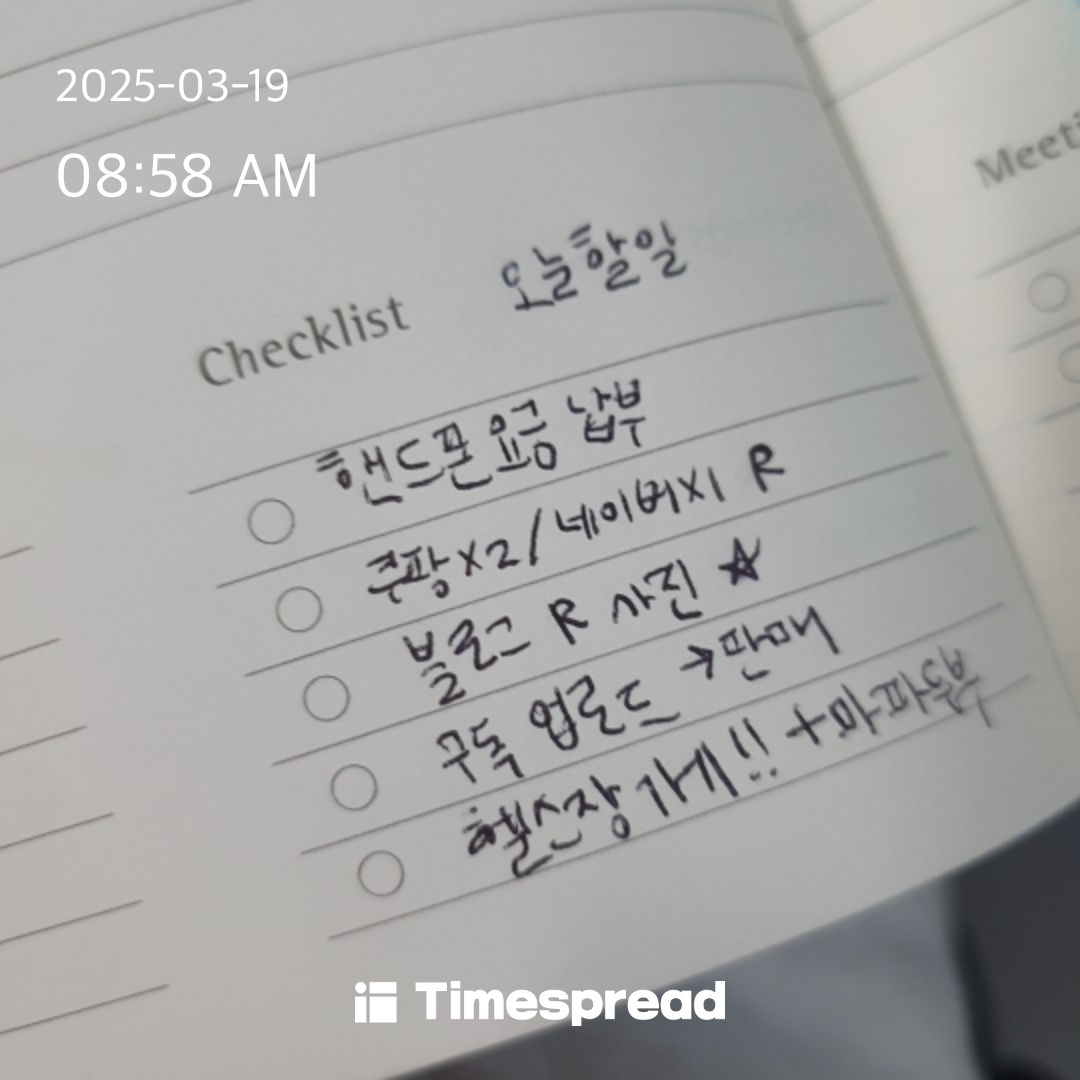 2025-03-19
08:58 AM
Checklist 오늘할일
핸드폰 요금 납부
쿠팡x2/네이버x1 R
블로그 R 사진 ☆
구독 업로드 →판매
헬스장 가게!! +마파두부
Meeti
Timespread